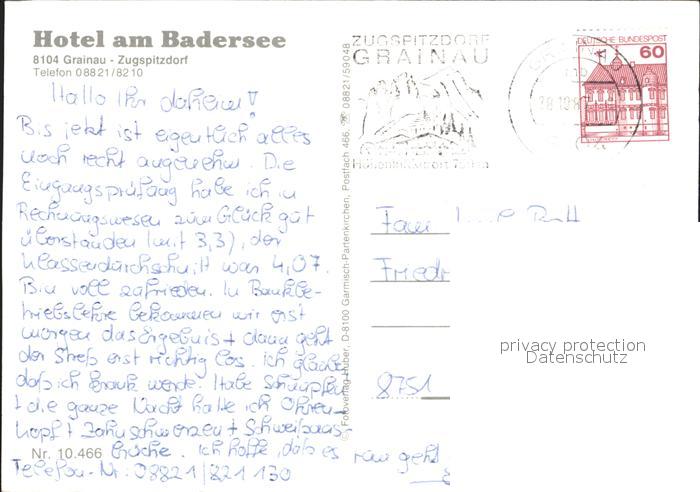 Hotel am Badersee
8104 Grainau - Zugspitzdorf
Telefon 08821/8210
Hallo Ihr daheim!
Bis jetzt ist eigentlich alles
noch recht angenehm. Die
Eingangsprüfung habe ich in
Rechnungswesen zum Glück gut
überstanden (mit 3,3), der
Klassendurchschnitt war 4,07.
Bin voll zufrieden. In Bankbe-
triebslehre bekommen wir erst
morgen das Ergebnis + dann geht
der Streß erst richtig los. Ich glaube
daß ich krank werde. Habe Schnupfen
+ die ganze Nacht hatte ich Ohren-
Kopf + Zahnschmerzen + Schweißaus-
brüche. Ich hoffe, daß es rum geht
Nr. 10.466
Telefon-Nr: 08821/821 130
© Fotoverlag Huber, D-8100 Garmisch-Partenkirchen, Postfach 466, ☎ 08821/59048
ZUGSPITZDORF
GRAINAU
DEUTSCHE BUNDESPOST
60
Fam
Friedr
8751
privacy protection
Datenschutz